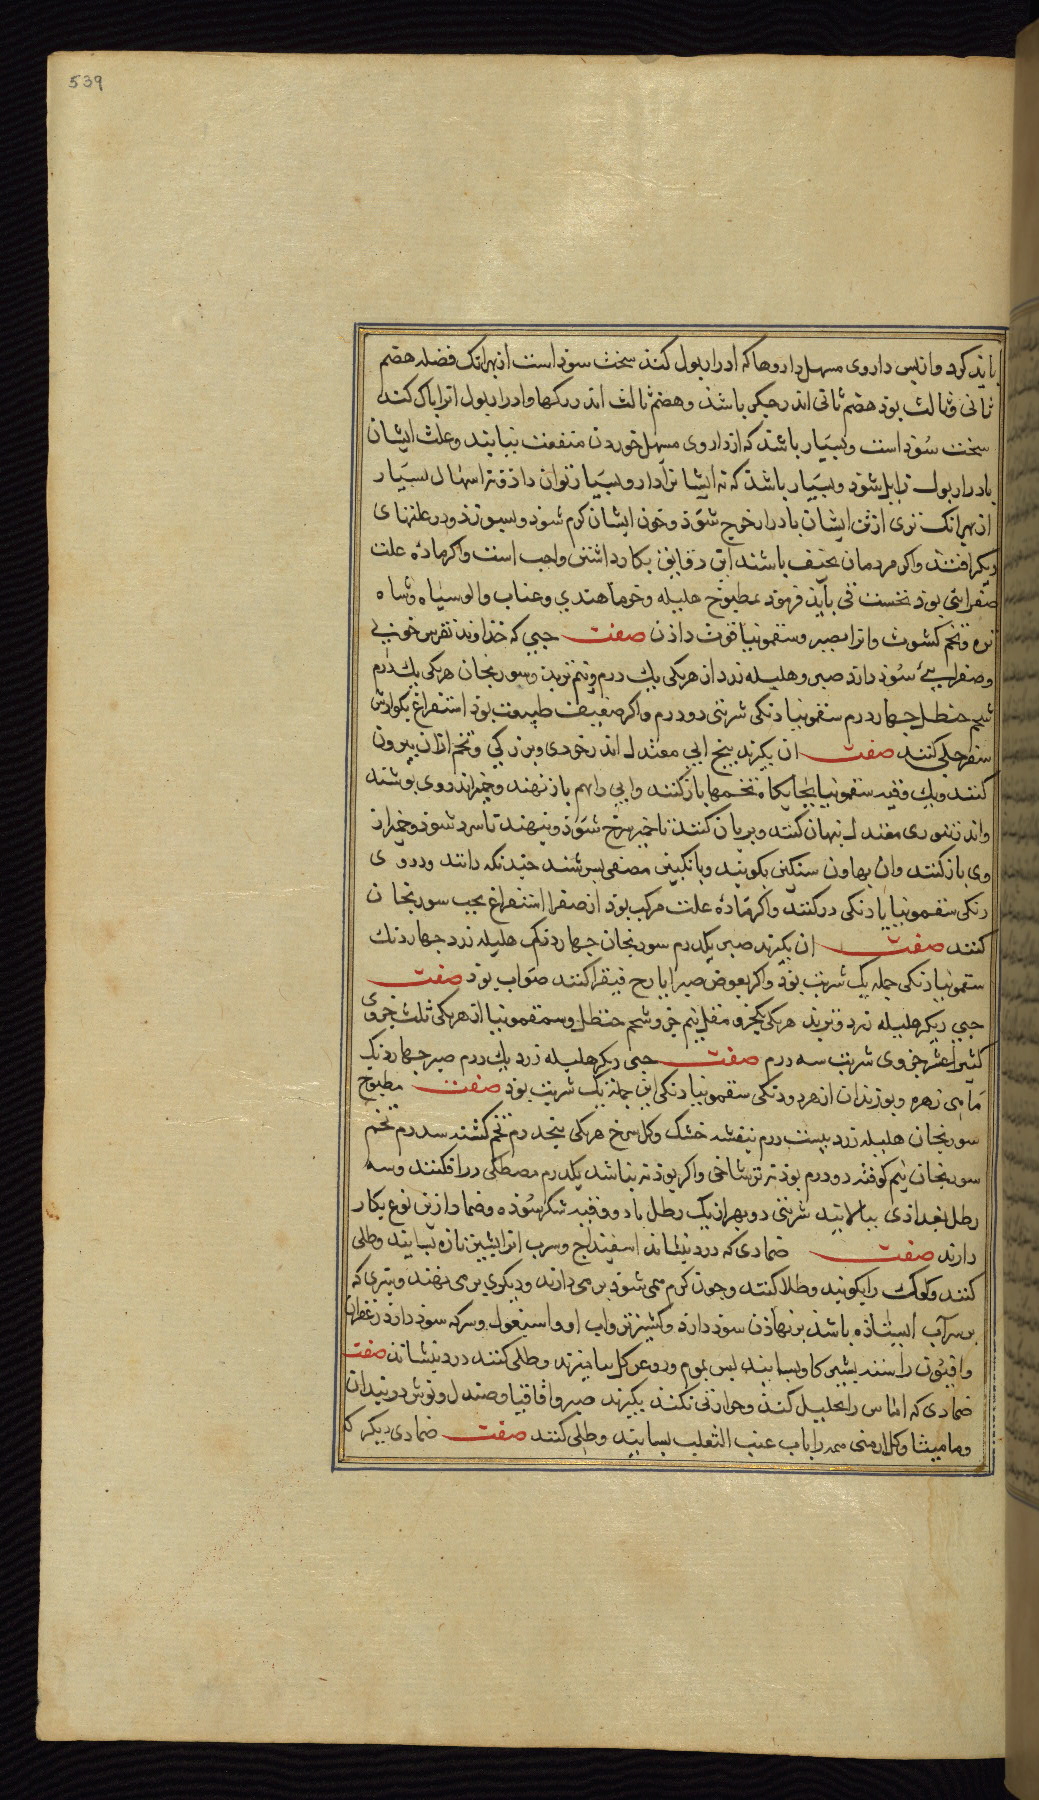 539
باید کرد و از پس داروی مسهل داروها که ادرار بول کند سخت سوذ است از بهر انک فضله هضم
ثانی و ثالث بوذ هضم ثانی اندر جکر باشذ و هضم ثالث اندر رکها و ادرار بول انرا پاک کند
سخت سُوذ است و بسیَار باشد که از داروی مسهل خوردن منفعت نیابند و علت ایشان
بادرار بول زایل شوذ و بسیَار باشذ که نه ایشانرا دارو بسیَار توان داذ و نه اسهال بسیَار
از بهر انک تری از تن ایشان بادرار خرج شوَذ و خون ایشان کرم شوذ و بسوزذ و در علتهای
دیکر افتند و اکر مردمان نحیف باشند این دقایق بکار داشتن واجب است و اکر مادهٔ علت
صفرایی بوذ نخست قی بایذ فرموذ بمطبوخ هلیله و خرما هندی و عناب و الو سیاه و شاه
تره و تخم کشوث و انرا بصبر و سقمونیا قوت داذن صفت حبی که خذاوند نقرس خونی
و صفرایی سُوذ دارد صبر و هلیله زرد از هر یکی یک درم و نیم تربد و سورنجان هر یکی یک درم
شحم حنظل چهار درم سقمونیا دنکی شربتی دو درم و اکر ضعیف طبیعت بوذ استفراغ بکوارش
سفرجلی کنند صفت ان بکیرند بیخ ابی معتدل اندر خردی و بزرکی و تخم ازان بیرون
کنند و یک وقیه سقمونیا بجایکاه تخمها باز کنند و ابی را بهم باز نهند و خمیر اندر وی پوشند
و اندر تنوری معتدل نهان کنند و بریان کنند تا خمیر سرخ شوَذ و بنهند تا سرد شوذ و خمیر از
وی باز کنند و ان بهاون سنکین بکوبند و بانکبین مصفی بسرشند چندانکه دانند و در وی
دنکی سقمونیا یا دنکی در کنند و اکر مادهٔ علت مرکب بوذ از صفرا استفراغ بحب سورنجان
کنند صفت ان بکیرند صبر یکدرم سورنجان چهار دنک هلیله زرد چهار دنک
سقمونیا دنکی جمله یک شربت بوذ و اکر بعوض صبر ایارج فیقرا کنند صوَاب بوذ صفت
حبی دیکر هلیله زرد و تربد هر یکی یکجزو مقل نیم جزو شحم حنظل و سقمونیا از هر یکی ثلث جزوی
کتیرا عشر جزوی شربت سه درم صفت حبی دیکر هلیله زرد یک درم صبر چهار دنک
مَاهی زهره و بوزیدان از هر دو دنکی سقمونیا دنکی این جمله یک شربت بوذ صفت مطبوخ
سورنجان هلیله زرد بیست درم بنفشه خشک و کل سرخ هر یکی پنجدرم تخم کشنه سدرم تخم
سورنجان نیم کوفته دو درم بوذنه تر شاخی و اکر بوذنه نباشد یکدرم مصطکی در افکنند و سه
رطل بغداذی بپالایند شربتی دو بهر از یک رطل با دو وقیه شکر سُوذه و ضماد ازین نوع بکار
دارند صفت ضمادی که درد بنشاند اسفیذاج و سرب اترابشیز تازه بسایند و طلی
کنند و کوک را بکوبند و طلا کنند و چون کرم می شوذ بر می دارند و دیکری بر می نهند و تبری که
بر سر آب ایستاذه باشد بر نهاذن سوذ دارد و کشنیز تر و اب او و اسبغول و سرکه سوذ دارد زعفران
و افیُون راستد بشیر کاو بسایند پس بموم و روغن کل بیامیزند و طلی کنند درد بنشاند صفت
ضمادی که اماس را تحلیل کند و حرارتی نکند بکیرند صبر و اقاقیا و صندل و بوش دربندان
و مامیثا و کل ارمنی همه را باب عنب الثعلب بسایند و طلی کنند صفت ضمادی دیکر که